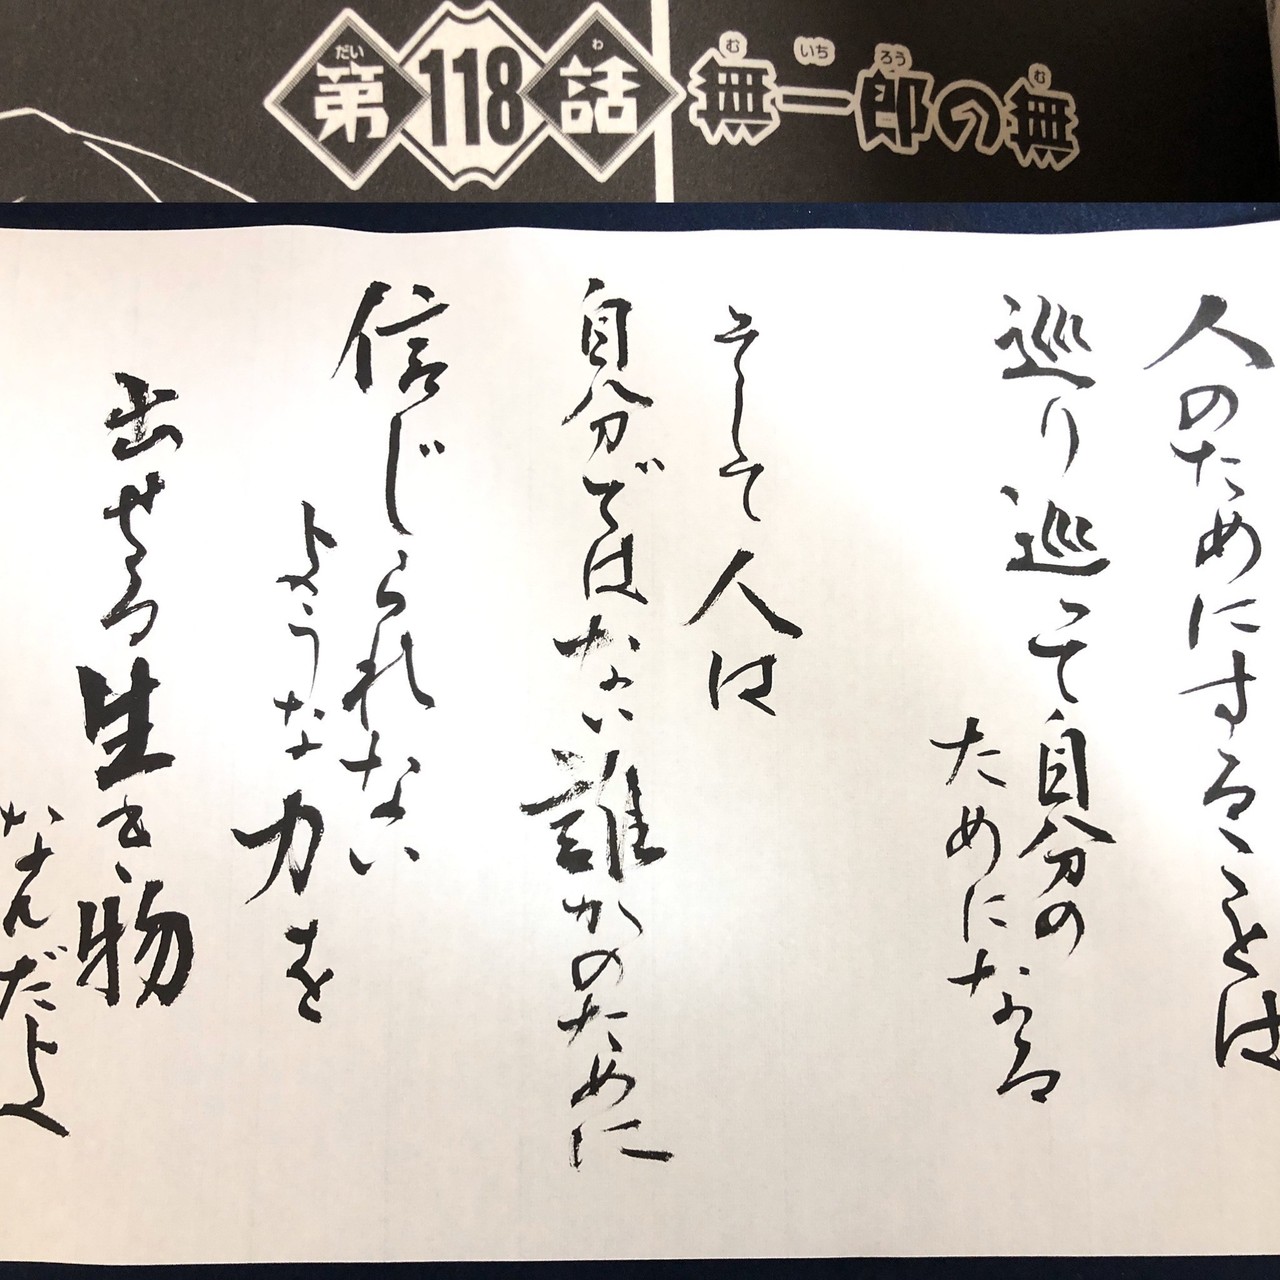 第118話 無一郎の無
だい わ む いち ろう む
人のためにすることは
巡り巡って自分の
ためになる
そして人は
自分ではない誰かのために
信じられない
ような力を
出せる生き物
なんだよ